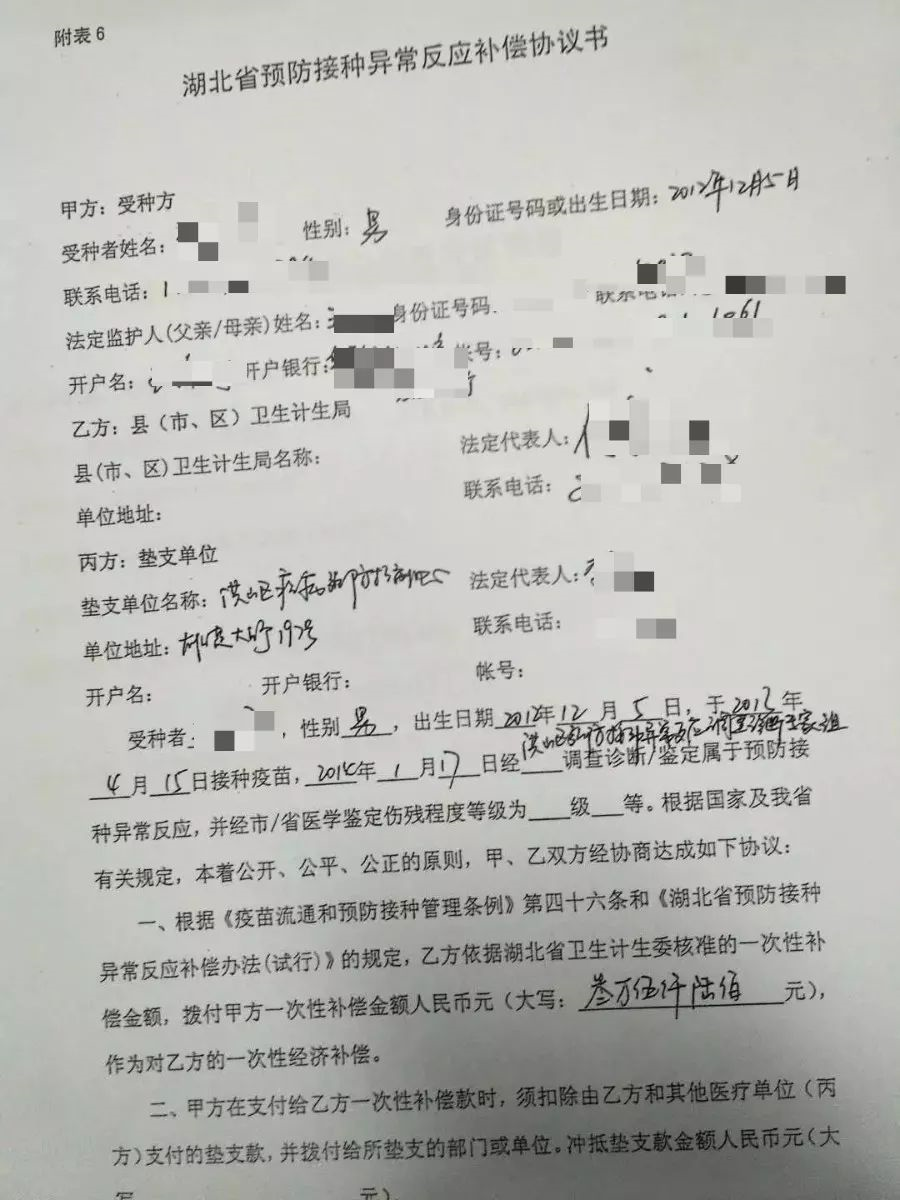 附表6
湖北省预防接种异常反应补偿协议书
甲方：受种方
受种者姓名： 性别：男 身份证号码或出生日期：2012年12月5日
联系电话：1
法定监护人(父亲/母亲)姓名： 身份证号码. 联系电话
开户名： 开户银行： 帐号：
乙方：县（市、区）卫生计生局
县(市、区)卫生计生局名称： 法定代表人：
单位地址： 联系电话：
丙方：垫支单位
垫支单位名称：洪山区疾病预防控制中心 法定代表人：
单位地址： 大路19号 联系电话：
开户名： 开户银行： 帐号：
受种者： ，性别 男 ，出生日期 2012年 12 月 5 日，于 2013年
洪山区预防接种异常反应调查诊断专家组
4 月 15日接种疫苗，2014年 1 月17 日经____调查诊断/鉴定属于预防接
种异常反应，并经市/省医学鉴定伤残程度等级为____级___等。根据国家及我省
有关规定，本着公开、公平、公正的原则，甲、乙双方经协商达成如下协议：
一、根据《疫苗流通和预防接种管理条例》第四十六条和《湖北省预防接种
异常反应补偿办法(试行)》的规定，乙方依据湖北省卫生计生委核准的一次性补
偿金额，拨付甲方一次性补偿金额人民币元（大写：叁万伍仟陆佰 元），
作为对乙方的一次性经济补偿。
二、甲方在支付给乙方一次性补偿款时，须扣除由乙方和其他医疗单位（丙
方）支付的垫支款，并拨付给所垫支的部门或单位。冲抵垫支款金额人民币元（大
写 元）.